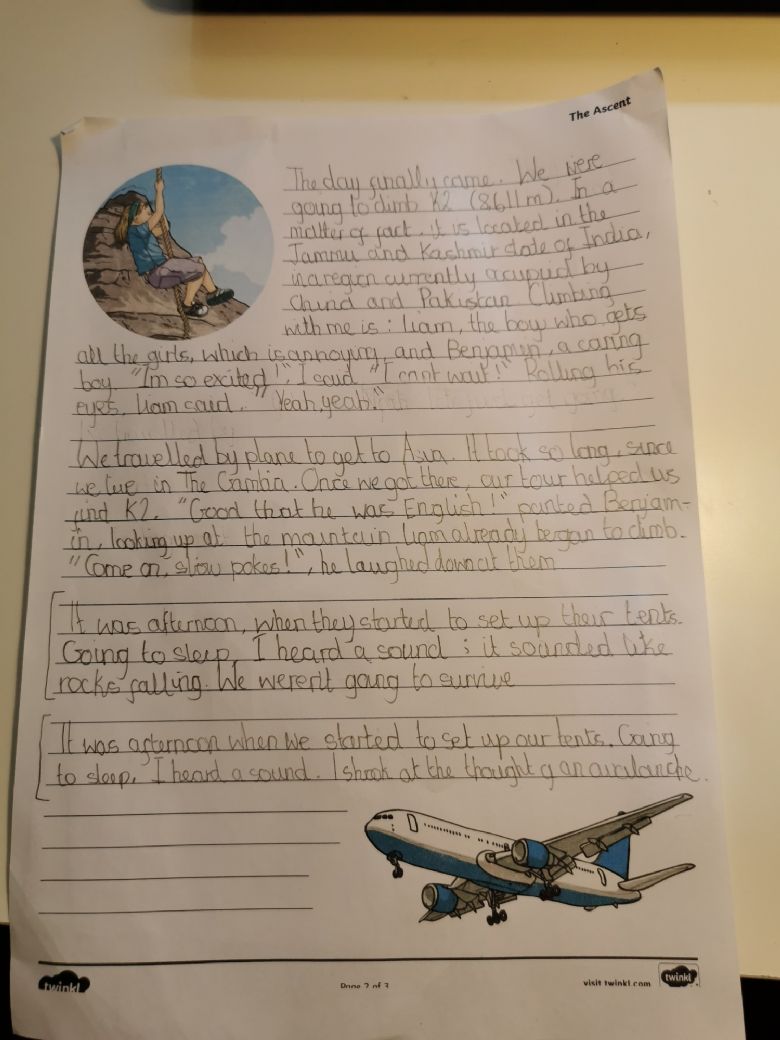 The Ascent
The day finally came. We were
going to climb K2 (8611m). In a
matter of fact, it is located in the
Jammu and Kashmir state of India,
in a region currently occupied by
China and Pakistan Climbing
with me is : Liam, the boy who gets
all the girls, which is annoying, and Benjamin, a caring
boy. "Im so excited!", I said "I cant wait!" Rolling his
eyes, Liam said. "Yeah, yeah."
We travelled by plane to get to Asia. It took so long, since
we live in The Gambia. Once we got there, our tour helped us
find K2. "Good that he was English!" panted Benjam-
in, looking up at the mountain Liam already bergan to climb.
"Come on, slow pokes!", he laughed down at them
It was afternoon, when they started to set up their tents.
Going to sleep, I heard a sound ; it sounded like
rocks falling. We weren't going to survive
It was afternoon when we started to set up our tents. Going
to sleep, I heard a sound. I shook at the thought of an avalanche.
twinkl
Page 2 of 3
visit twinkl.com
twinkl